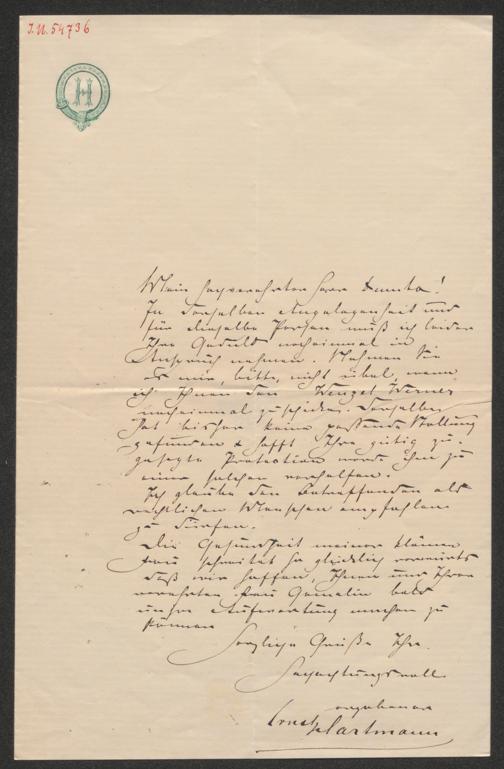 I.N. 54736
H
Mein hochverehrter Herr Dumba!
In derselben Angelegenheit und
für dieselbe Person muß ich leider
Ihre Geduld nocheinmal in
Anspruch nehmen. Nehmen Sie
es mir, bitte, nicht übel, wenn
ich Ihnen den Wenzel Werner
nocheinmal zuschicke. Derselbe
hat bisher keine passende Stellung
gefunden & hofft Ihre gütig zu-
gesagte Protection werde ihm zu
einer solchen verhelfen.
Ich glaube den Betreffenden als
rechtlichen Menschen empfehlen
zu dürfen.
Die Gesundheit meiner kleinen
Frau schreitet so glücklich vorwärts
daß wir hoffen, Ihnen und Ihrer
verehrten Frau Gemalin bald
unsre Aufwartung machen zu
können
Herzliche Grüße Ihr
hochachtungsvoll
ergebener
Ernst Hartmann